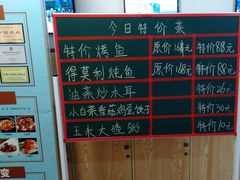 今日特价菜
特价烤鱼 原价168元 特价88元
得莫利炖鱼 原价168元 特价88元
油菜炒木耳 特价26元
小白菜香菇鸡蛋饺子 特价30元
玉米大碴粥 特价10元
变